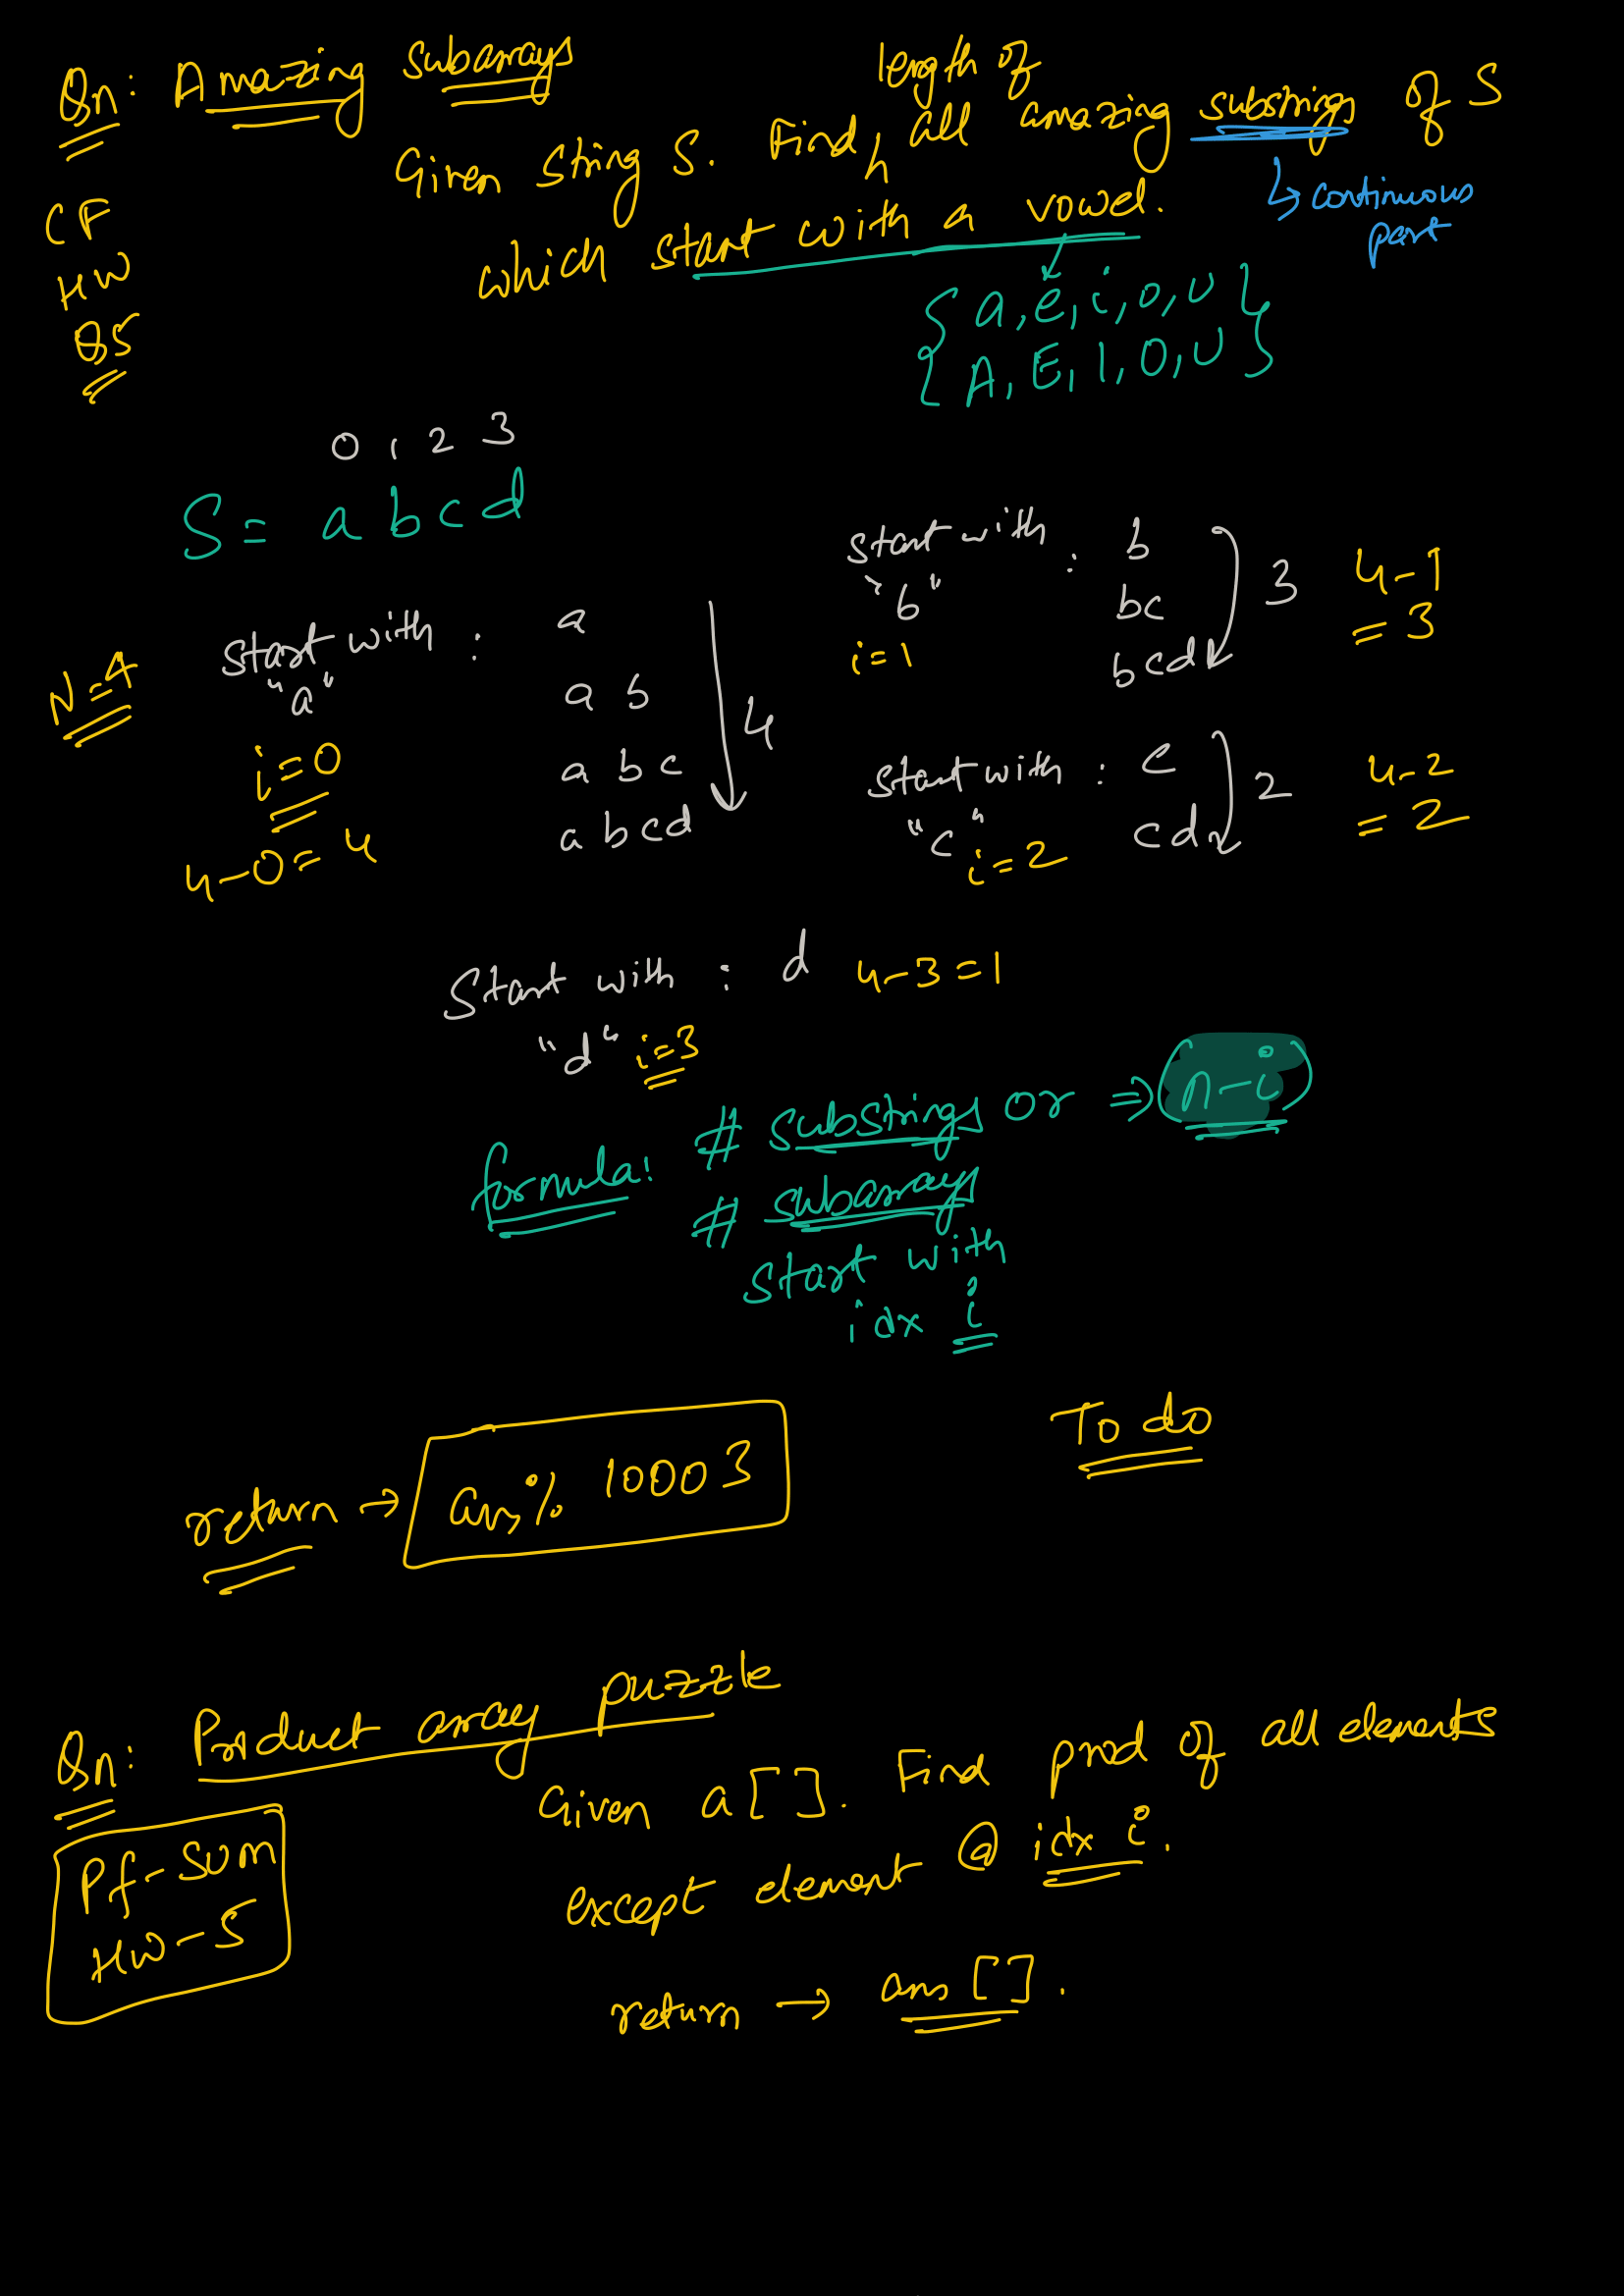 Qn: Amazing subarrays
length of
Given string S. Find all amazing substrings of S
↳ continuous part
which start with a vowel.
{a, e, i, o, u
A, E, I, O, U}
CF
HW
Q5
0 1 2 3
S = a b c d
N=4
start with "a" :
i=0
4-0=4
a
a b
a b c
a b c d
4
start with "b" :
i=1
b
bc
bcd
3
4-1
= 3
start with "c" :
i=2
c
cd
2
4-2
= 2
Start with "d" : d 4-3=1
i=3
formula: # substrings or ⇒ (n-i)
# subarrays
start with
idx i
return → ans % 10003
To do
Qn: Product array puzzle
Pf-sum
HW-5
Given a[]. Find prod of all elements
except element @ idx i.
return → ans[].